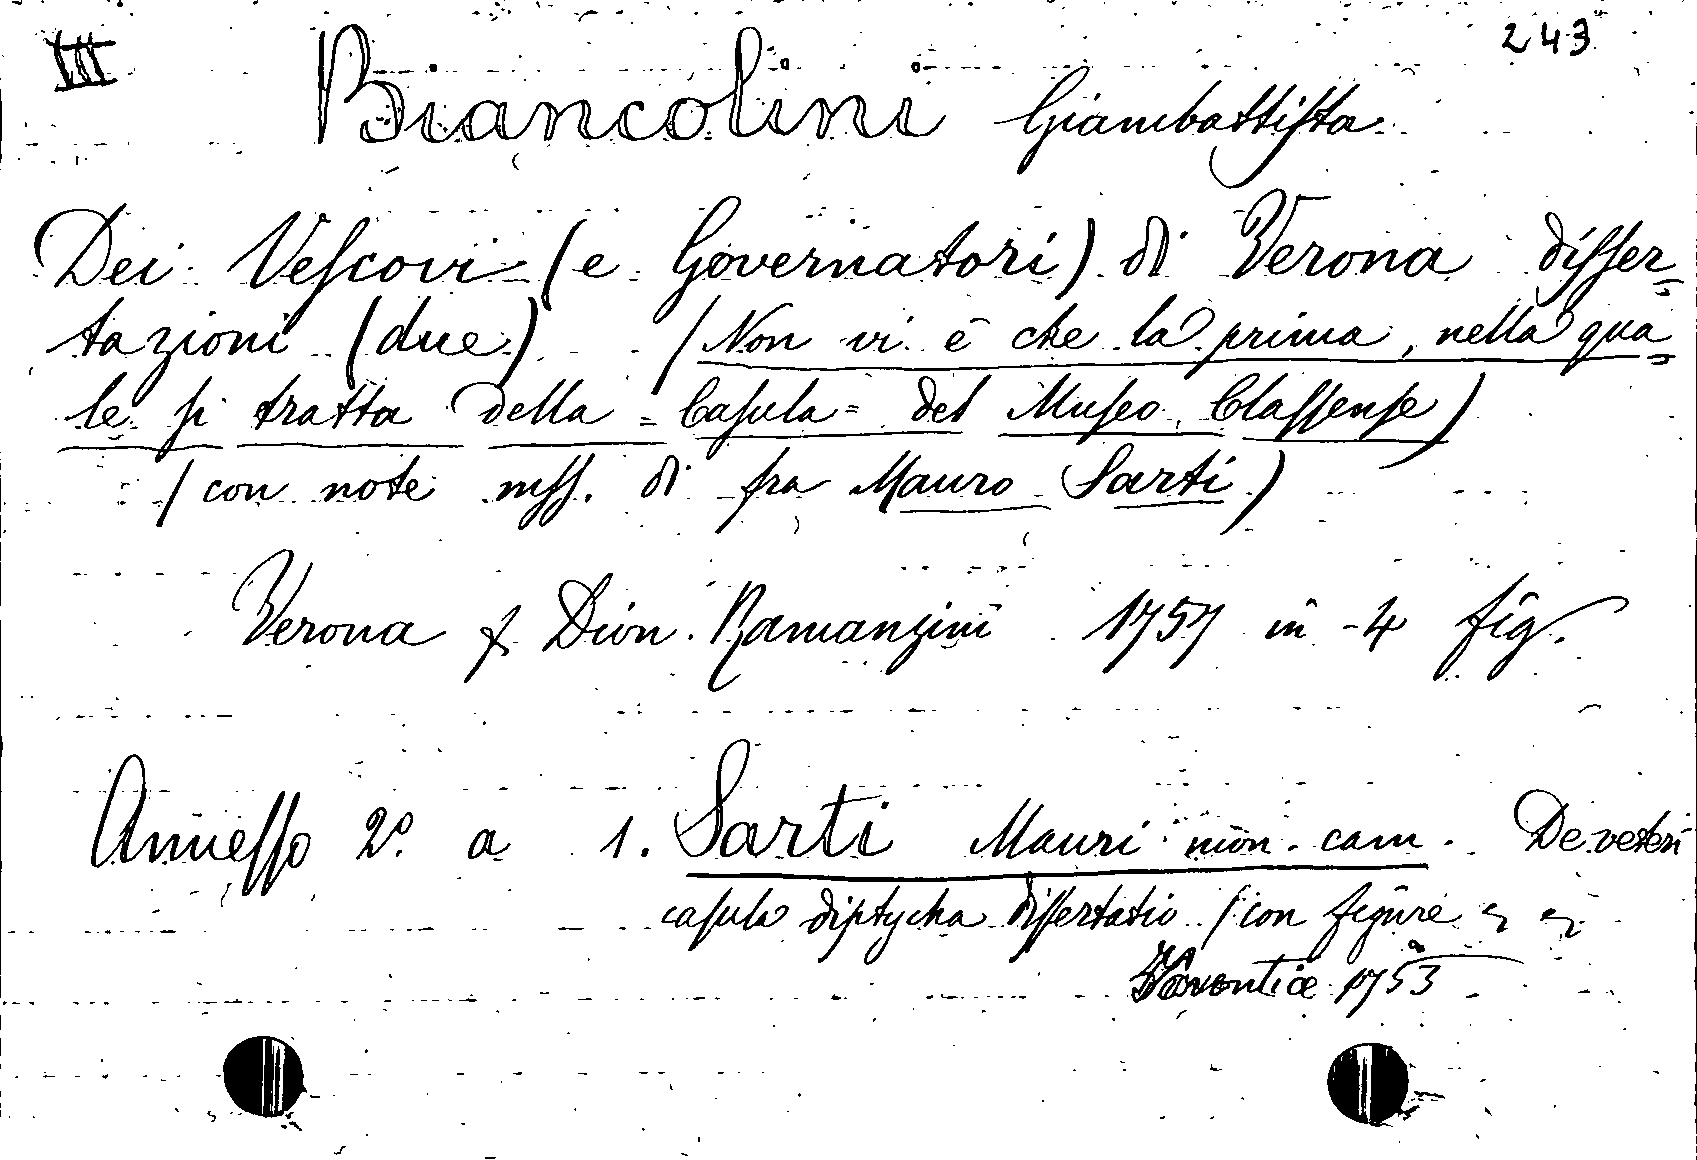 III
243
Biancolini Giambattista
Dei Vescovi (e Governatori) di Verona disser-
tazioni (due) (Non vi è che la prima, nella qua-
le si tratta della =Casula= del Museo Classense)
(con note mss. di fra Mauro Sarti)
Verona per Dion. Ramanzini 1757 in-4 fig.
Annesso 2º a 1. Sarti Mauri mon. cam. De veteri
casula diptycha dissertatio (con figure
Faventiæ 1753